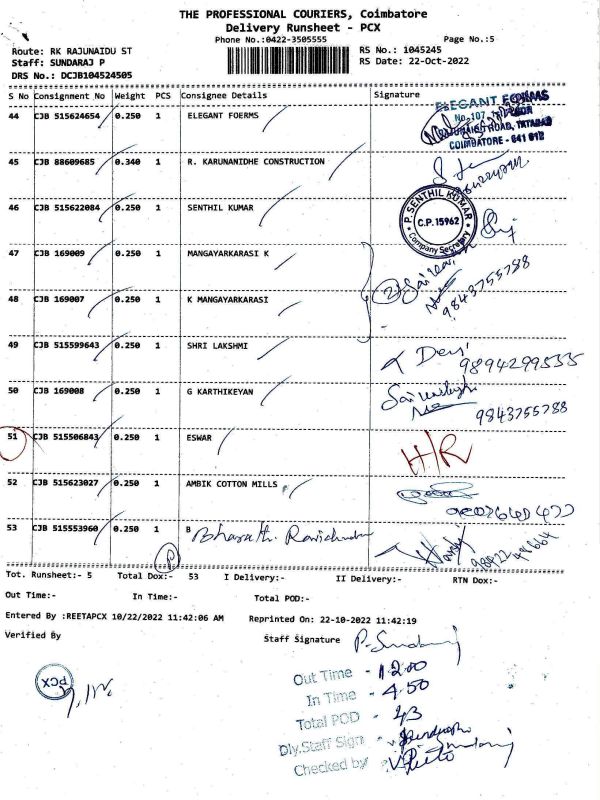 THE PROFESSIONAL COURIERS, Coimbatore
Delivery Runsheet - PCX
Phone No.:0422-3505555 Page No.:5
Route: RK RAJUNAIDU ST RS No.: 1045245
Staff: SUNDARAJ P RS Date: 22-Oct-2022
DRS No.: DCJB104524505
S No Consignment No Weight PCS Consignee Details Signature
44 CJB 515624654 0.250 1 ELEGANT FOERMS
ELEGANT
No.107,
ROAD, TATABAD
COIMBATORE - 641 012
45 CJB 88609685 0.340 1 R. KARUNANIDHE CONSTRUCTION
46 CJB 515622084 0.250 1 SENTHIL KUMAR
P. SENTHIL KUMAR
C.P. 15962
Company Secretary
47 CJB 169009 0.250 1 MANGAYARKARASI K
9843755788
48 CJB 169007 0.250 1 K MANGAYARKARASI
49 CJB 515599643 0.250 1 SHRI LAKSHMI
Devi 9894299535
50 CJB 169008 0.250 1 G KARTHIKEYAN
9843755788
51 CJB 515506843 0.250 1 ESWAR H/R
52 CJB 515623027 0.250 1 AMBIK COTTON MILLS
53 CJB 515553960 0.250 1 B Bharath. Ravichandran
P
Tot. Runsheet:- 5 Total Dox:- 53 I Delivery:- II Delivery:- RTN Dox:-
Out Time:- In Time:- Total POD:-
Entered By :REETAPCX 10/22/2022 11:42:06 AM Reprinted On: 22-10-2022 11:42:19
Verified By Staff Signature
PCX
Out Time - 12.00
In Time - 4.50
Total POD - 43
Dly.Staff Sign -
Checked by